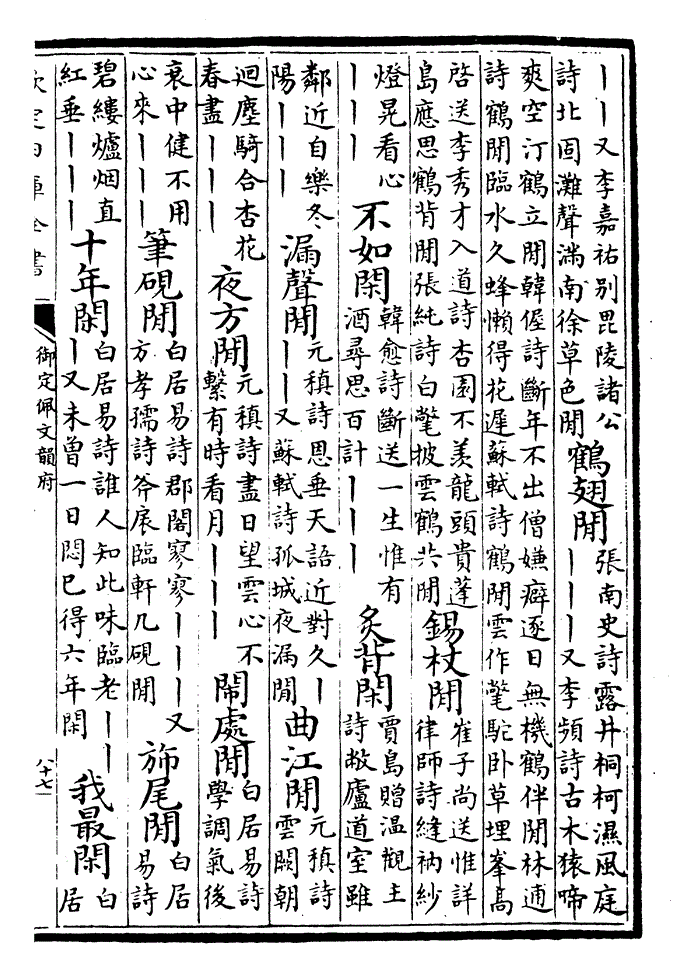 丨丨又李嘉祐别毘陵諸公
詩北固灘聲滿南徐草色閒
鶴翅閒
張南史詩露井桐柯濕風庭
丨丨丨又李頻詩古木猿啼
爽空汀鶴立閒韓偓詩斷年不出僧嫌癖逐日無機鶴伴閒林逋
詩鶴閒臨水久蜂懶得花遲蘇軾詩鶴閒雲作氅駝卧草埋峯高
啓送李秀才入道詩杏園不羨龍頭貴蓬
島應思鶴背閒張純詩白氅披雲鶴共閒
錫杖閒
崔子尚送惟詳
律師詩縫衲紗
燈晃看心
丨丨丨
不如閑
韓愈詩斷送一生惟有
酒尋思百計丨丨丨
炙背閑
賈島贈温觀主
詩敝廬道室雖
鄰近自樂冬
陽丨丨丨
漏聲閒
元稹詩恩垂天語近對久丨
丨丨又蘇軾詩孤城夜漏閒
曲江閒
元稹詩
雲闕朝
迴塵騎合杏花
春盡丨丨丨
夜方閒
元稹詩盡日望雲心不
繫有時看月丨丨丨
鬧處閒
白居易詩
學調氣後
衰中健不用
心來丨丨丨
筆硯閒
白居易詩郡閣寥寥丨丨丨又
方孝孺詩斧扆臨軒几硯閒
斾尾閒
白居
易詩
碧縷爐烟直
紅垂丨丨丨
十年閑
白居易詩誰人知此味臨老丨丨
丨又未曾一日悶已得六年閑
我最閑
白
居
欽定四庫全書
御定佩文韻府
八十七